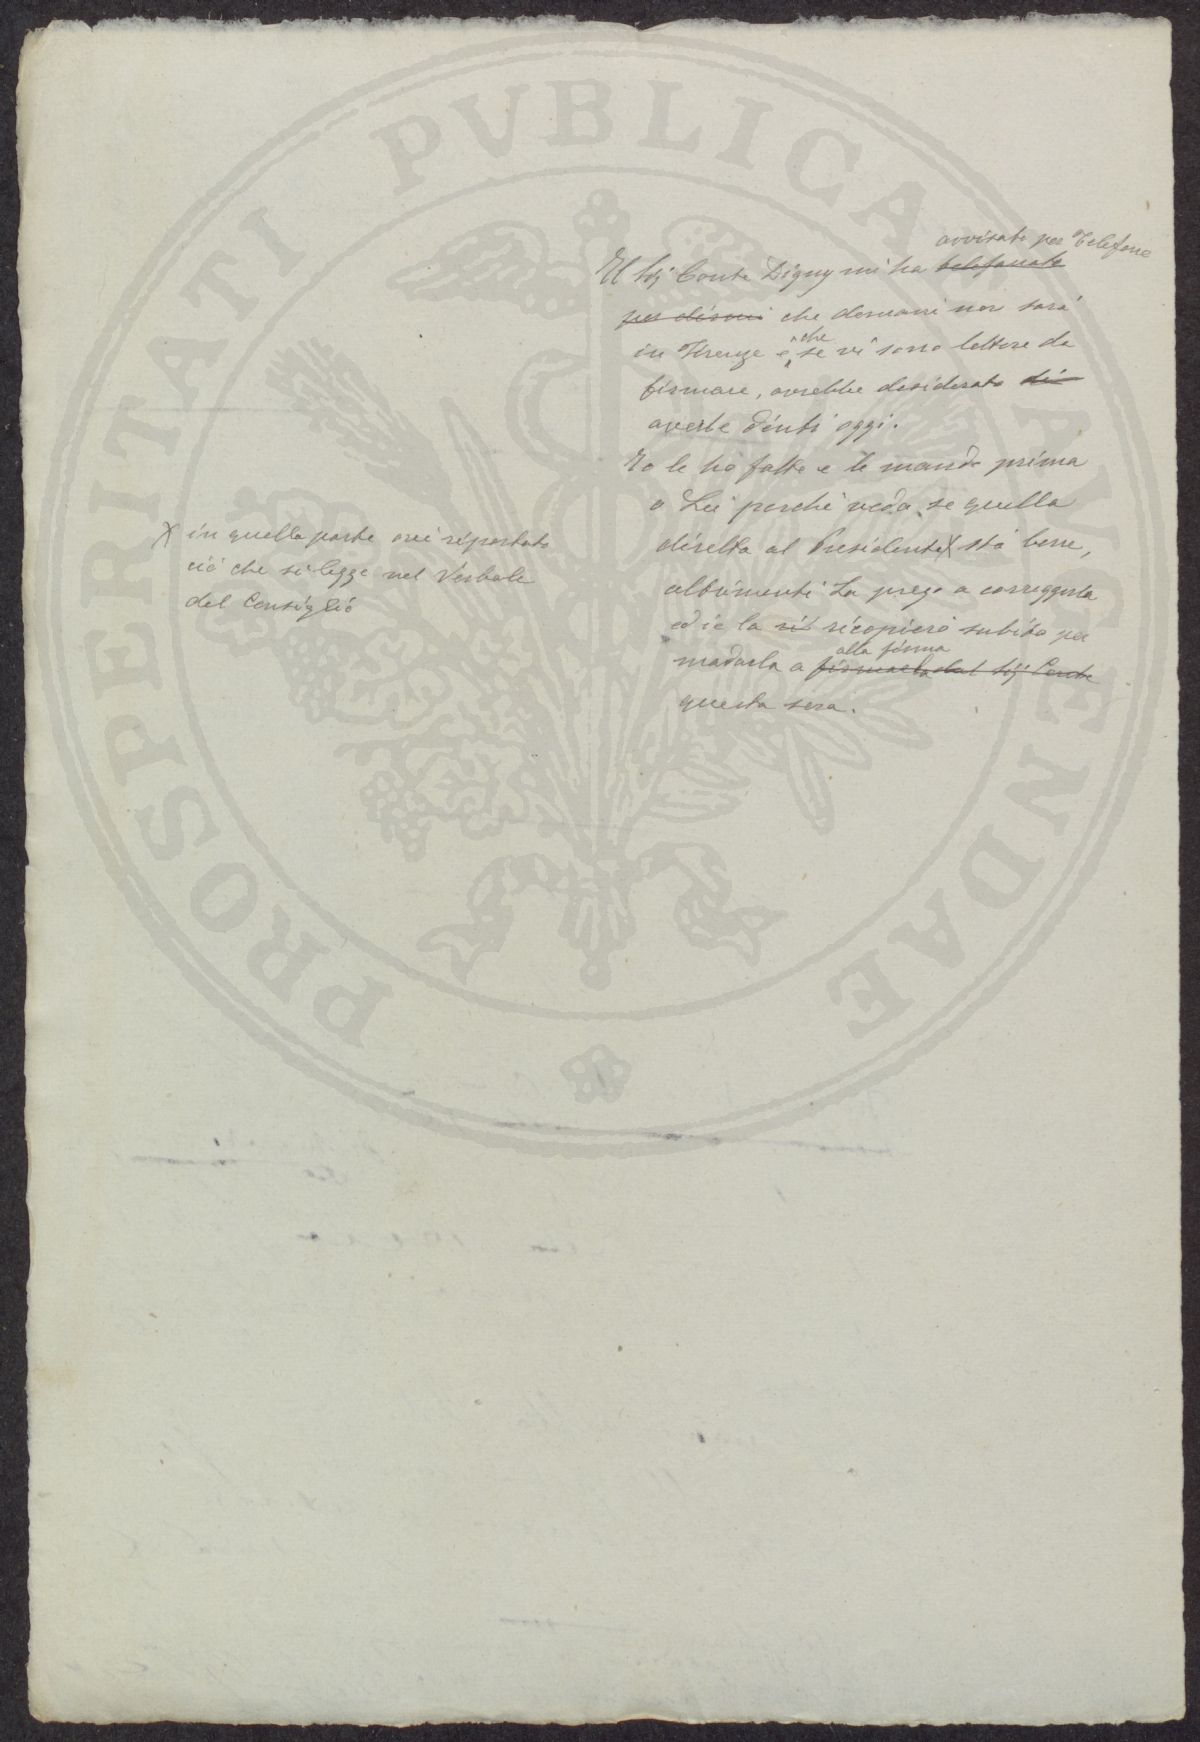 PROSPERITATI PVBLICAE AVGENDAE
avvisato per Telefono
Il Sig Conte Digny mi ha telefonato
per dirmi che domani non sarà
in Firenze e che se vi sono lettere da
firmare, avrebbe desiderato di
averle di'nti oggi.
Io le ho fatte e le mando prima
a Lei perché veda se quella
diretta al Presidente X stà bene,
altrimenti La prego a correggerla
ed io la ri ricopierò subito per
alla firma
madarla a firmarla dal Sig Conte
questa sera.
X in quella parte ove riportato
ciò che si legge nel Verbale
del Consiglio